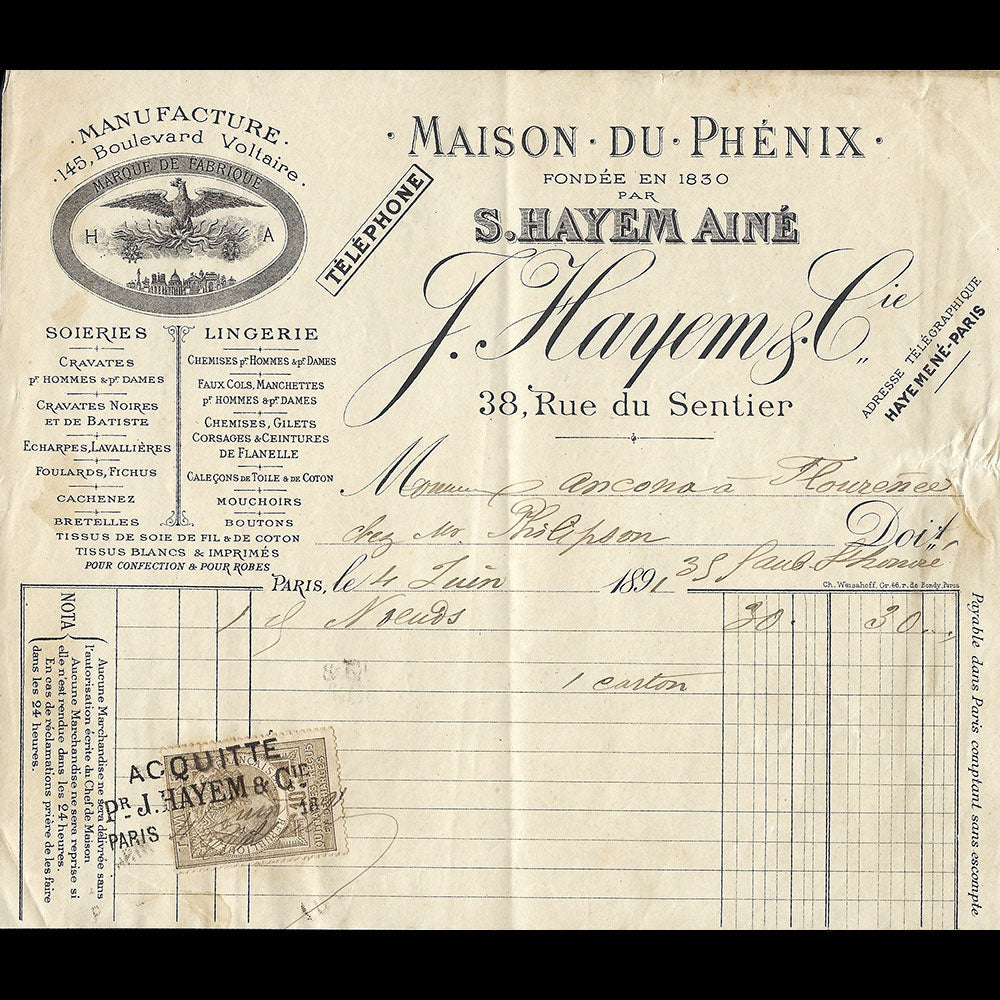 · MANUFACTURE ·
· 145, Boulevard Voltaire ·
MARQUE DE FABRIQUE
H A
TÉLÉPHONE
· MAISON · DU · PHÉNIX ·
FONDÉE EN 1830
PAR
S. HAYEM AINÉ
J. Hayem & Cie
38, Rue du Sentier
ADRESSE TÉLÉGRAPHIQUE
HAYEMENÉ-PARIS
SOIERIES
CRAVATES
pr HOMMES & pr DAMES
CRAVATES NOIRES
ET DE BATISTE
ECHARPES, LAVALLIÈRES
FOULARDS, FICHUS
CACHENEZ
BRETELLES
LINGERIE
CHEMISES pr HOMMES & pr DAMES
FAUX COLS, MANCHETTES
pr HOMMES & pr DAMES
CHEMISES, GILETS
CORSAGES & CEINTURES
DE FLANELLE
CALEÇONS DE TOILE & DE COTON
MOUCHOIRS
BOUTONS
TISSUS DE SOIE DE FIL & DE COTON
TISSUS BLANCS & IMPRIMÉS
POUR CONFECTION & POUR ROBES
Ancona à Flourence
chez Mr. Philipson Doit,
35 faub. St honoré
PARIS, le 4 Juin 1891
Ch. Weisshoff, Gr. 46, r. de Bondy, Paris
1 Nœuds 30. 30
1 carton
NOTA
Aucune Marchandise ne sera délivrée sans
l'autorisation écrite du Chef de Maison
Aucune Marchandise ne sera reprise si
elle n'est rendue dans les 24 heures.
En cas de réclamations prière de les faire
dans les 24 heures.
ACQUITTÉ
Pr J. HAYEM & CIE
PARIS
Payable dans Paris comptant sans escompte